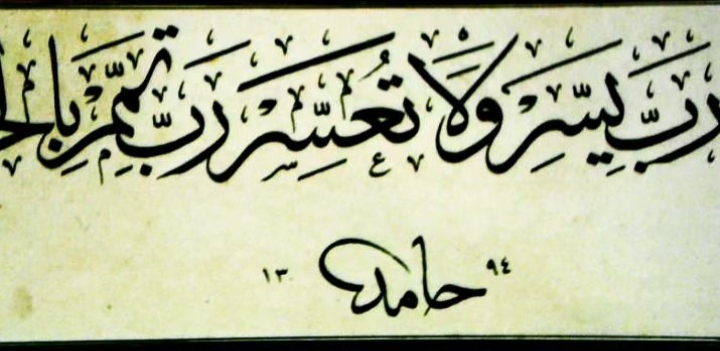 رَبِّ يَسِّرْ وَلَا تُعَسِّرْ رَبِّ تَمِّمْ بِالخ
٩٤ حامد ١٣